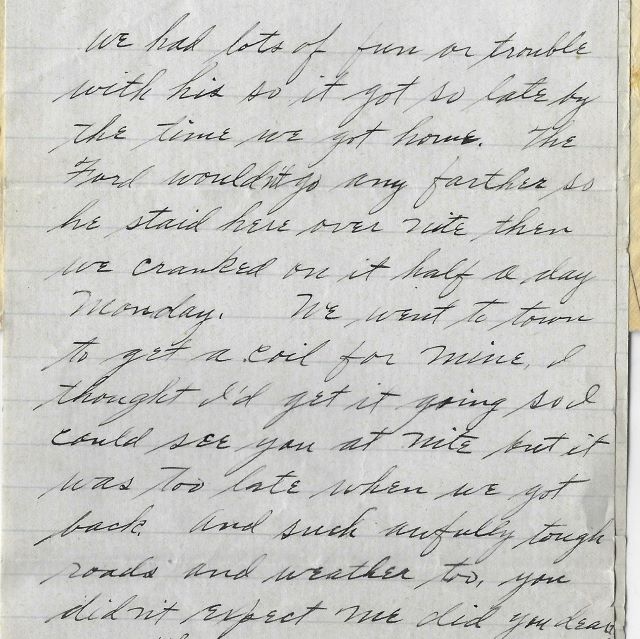 we had lots of fun or trouble
with his so it got so late by
the time we got home. The
Ford wouldn't go any farther so
he staid here over nite then
we cranked on it half a day
Monday. We went to town
to get a coil for mine, I
thought I'd get it going so I
could see you at nite but it
was too late when we got
back. And such awfully tough
roads and weather too, you
didn't expect me did you dear